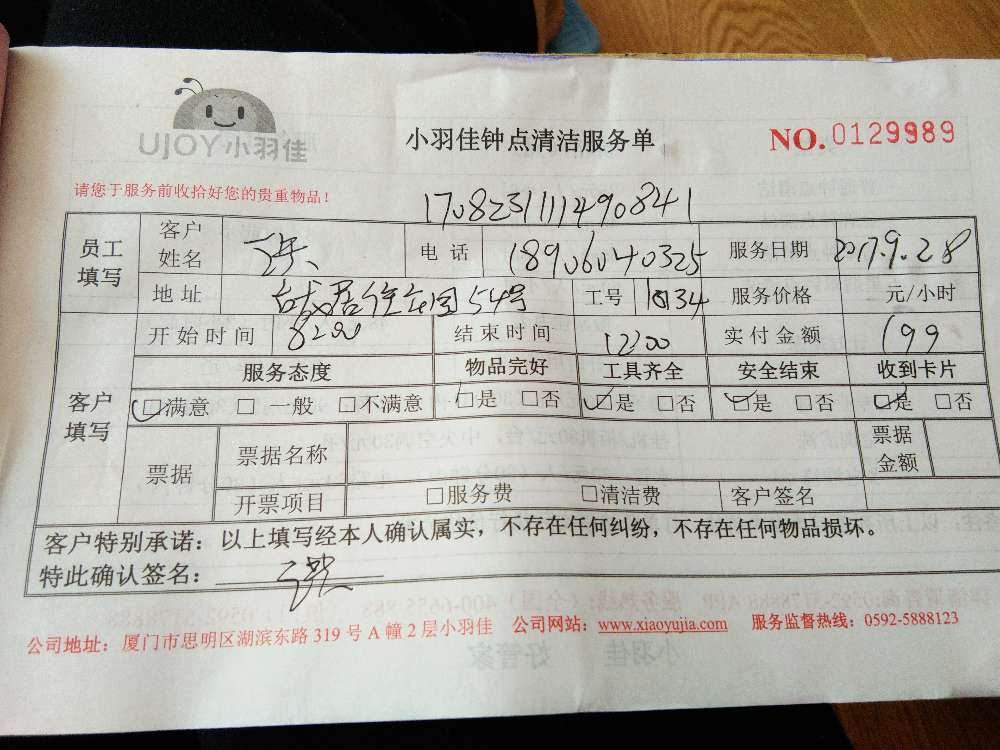 UJOY小羽佳
小羽佳钟点清洁服务单
NO. 0129989
请您于服务前收拾好您的贵重物品！
170823111490841
员工填写 客户姓名 洪 电话 18906040325 服务日期 2017.9.28
地址 54号 工号 服务价格 元/小时
客户填写 开始时间 8:00 结束时间 12:00 实付金额 199
服务态度 物品完好 工具齐全 安全结束 收到卡片
□满意 □一般 □不满意 □是 □否 □是 □否 □是 □否 □是 □否
票据 票据名称 票据金额
开票项目 □服务费 □清洁费 客户签名
客户特别承诺：以上填写经本人确认属实，不存在任何纠纷，不存在任何物品损坏。
特此确认签名： 洪
公司地址：厦门市思明区湖滨东路 319 号 A 幢 2 层小羽佳 公司网站：www.xiaoyujia.com 服务监督热线：0592-5888123